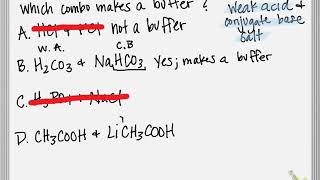 Which combo makes a buffer?
weak acid &
conjugate base
salt
A. not a buffer
W.A. C.B
B. H₂CO₃ & NaHCO₃ yes; makes a buffer
C. H₃PO₄
D. CH₃COOH & LiCH₃COOH